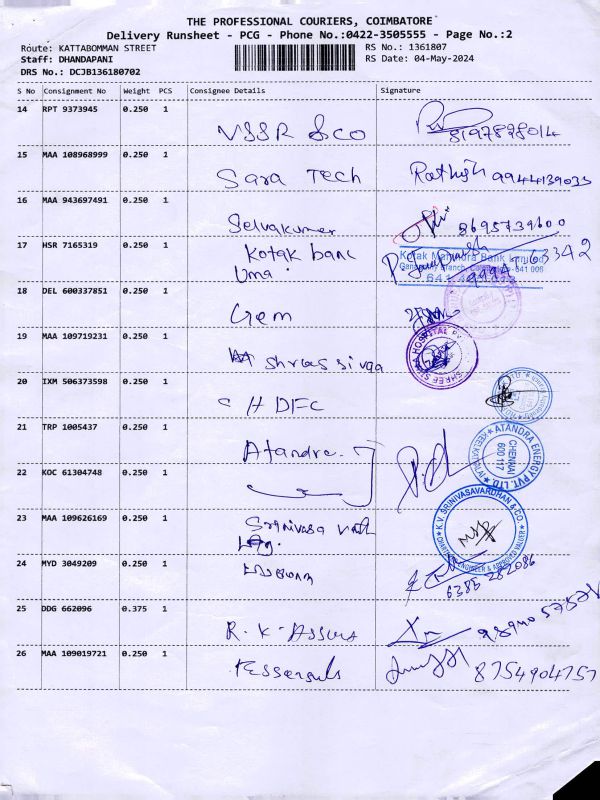 THE PROFESSIONAL COURIERS, COIMBATORE
Delivery Runsheet - PCG - Phone No.:0422-3505555 - Page No.:2
Route: KATTABOMMAN STREET RS No.: 1361807
Staff: DHANDAPANI RS Date: 04-May-2024
DRS No.: DCJB136180702
S No Consignment No Weight PCS Consignee Details Signature
14 RPT 9373945 0.250 1
VSSR & CO 8197898014
15 MAA 108968999 0.250 1
Sara Tech
16 MAA 943697491 0.250 1
Selvakumar 8695739600
17 HSR 7165319 0.250 1
Kotak banc
Uma
Kotak Mahindra Bank Limited
18 DEL 600337851 0.250 1
Gem
19 MAA 109719231 0.250 1
Shree Sivaa
20 IXM 506373598 0.250 1
HDFC
21 TRP 1005437 0.250 1
Atandra
ATANDRA ENERGY PVT. LTD.
CHENNAI
600 117
22 KOC 61304748 0.250 1
23 MAA 109626169 0.250 1
Srinivasa
K.V. SRINIVASAVARDHAN & CO.
ENGINEER & APPROVED VALUER
24 MYD 3049209 0.250 1
6385 282086
25 DDG 662096 0.375 1
R.K-Assoes
26 MAA 109019721 0.250 1
8754904757